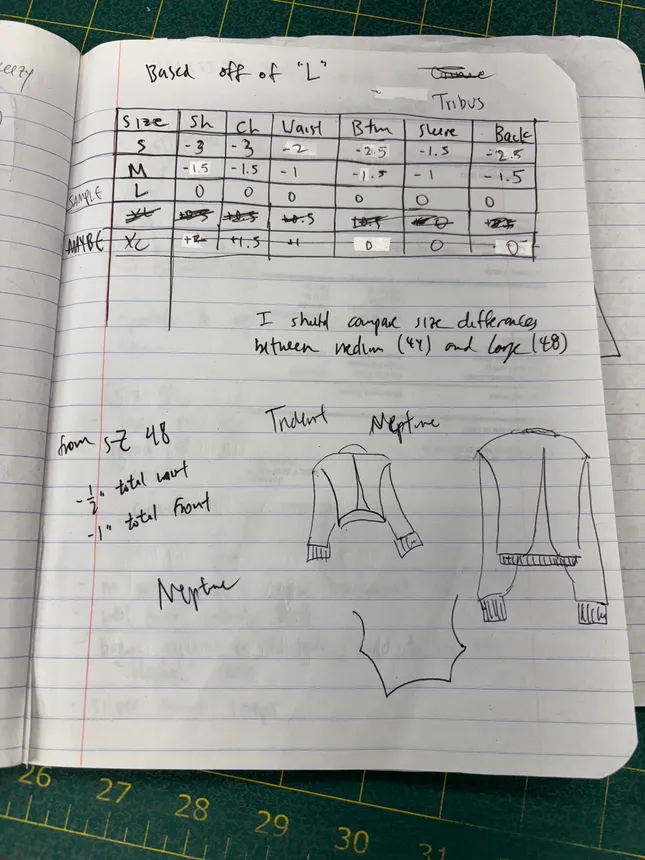 eezy
Based off of "L"
Tribus
Size Sh Ch Waist Btm Sleeve Back
S -3 -3 -2 -2.5 -1.5 -2.5
M -1.5 -1.5 -1 -1.5 -1 -1.5
SAMPLE L 0 0 0 0 0 0
XL +.5 +.5 +0.5 0
MAYBE XL +2 +1.5 +1 0 0 0
I should compare size differences
between medium (44) and large (48)
Trident Neptune
from sz 48
-1/2" total waist
-1" total front
Neptune
26 27 28 29 30 31